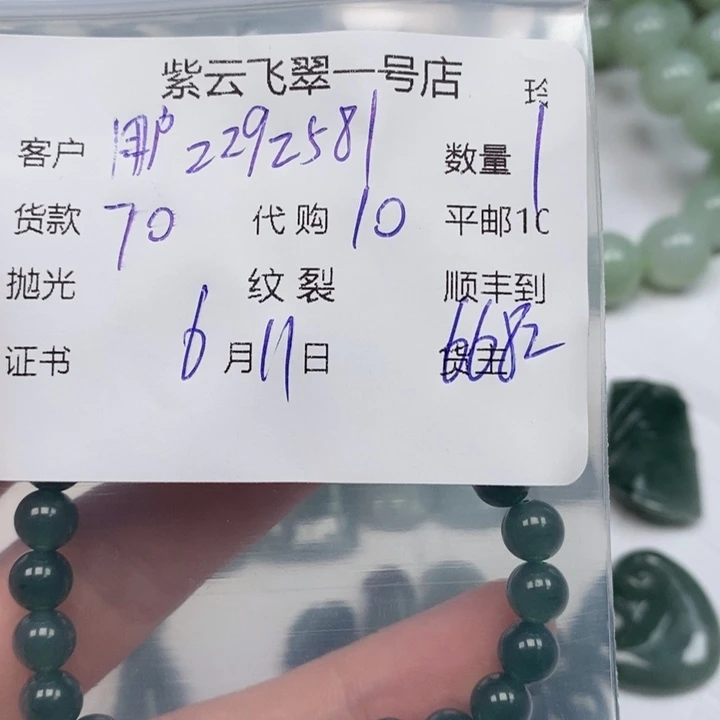 紫云飞翠一号店
客户 用户2292581 数量 1
货款 70 代购 10 平邮10
抛光 纹裂 顺丰到
证书 6月11日 货主 6682